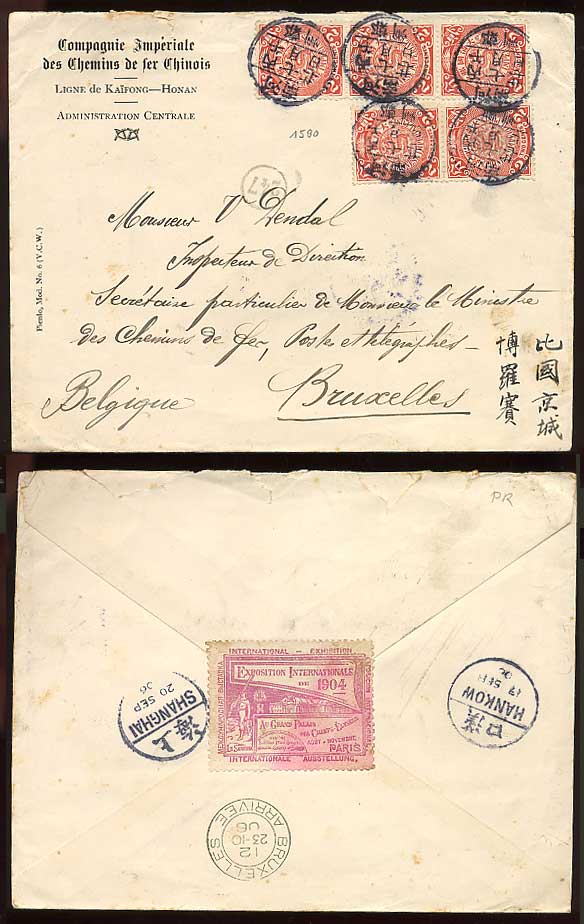 Compagnie Impériale
des Chemins de fer Chinois
LIGNE DE KAÏFONG—HONAN
ADMINISTRATION CENTRALE
1590
Piemlo, Mod. No. 6 (V.C.W.)
Monsieur V Dendal
Inspecteur de Direction
Secrétaire particulier de Monsieur le Ministre
des Chemins de fer, Postes et télégraphes—
Bruxelles
Belgique
比國京城
博羅賽
PR
INTERNATIONAL — EXHIBITION
EXPOSITION INTERNATIONALE
DE 1904
AU GRAND PALAIS
DES CHAMPS-ELYSEES
AOUT - NOVEMBRE
PARIS
INTERNATIONALE AUSSTELLUNG
SHANGHAI
20 SEP
06
上海
HANKOW
17 SEP
06
漢口
BRUXELLES
12
23-10
06
ARRIVÉE